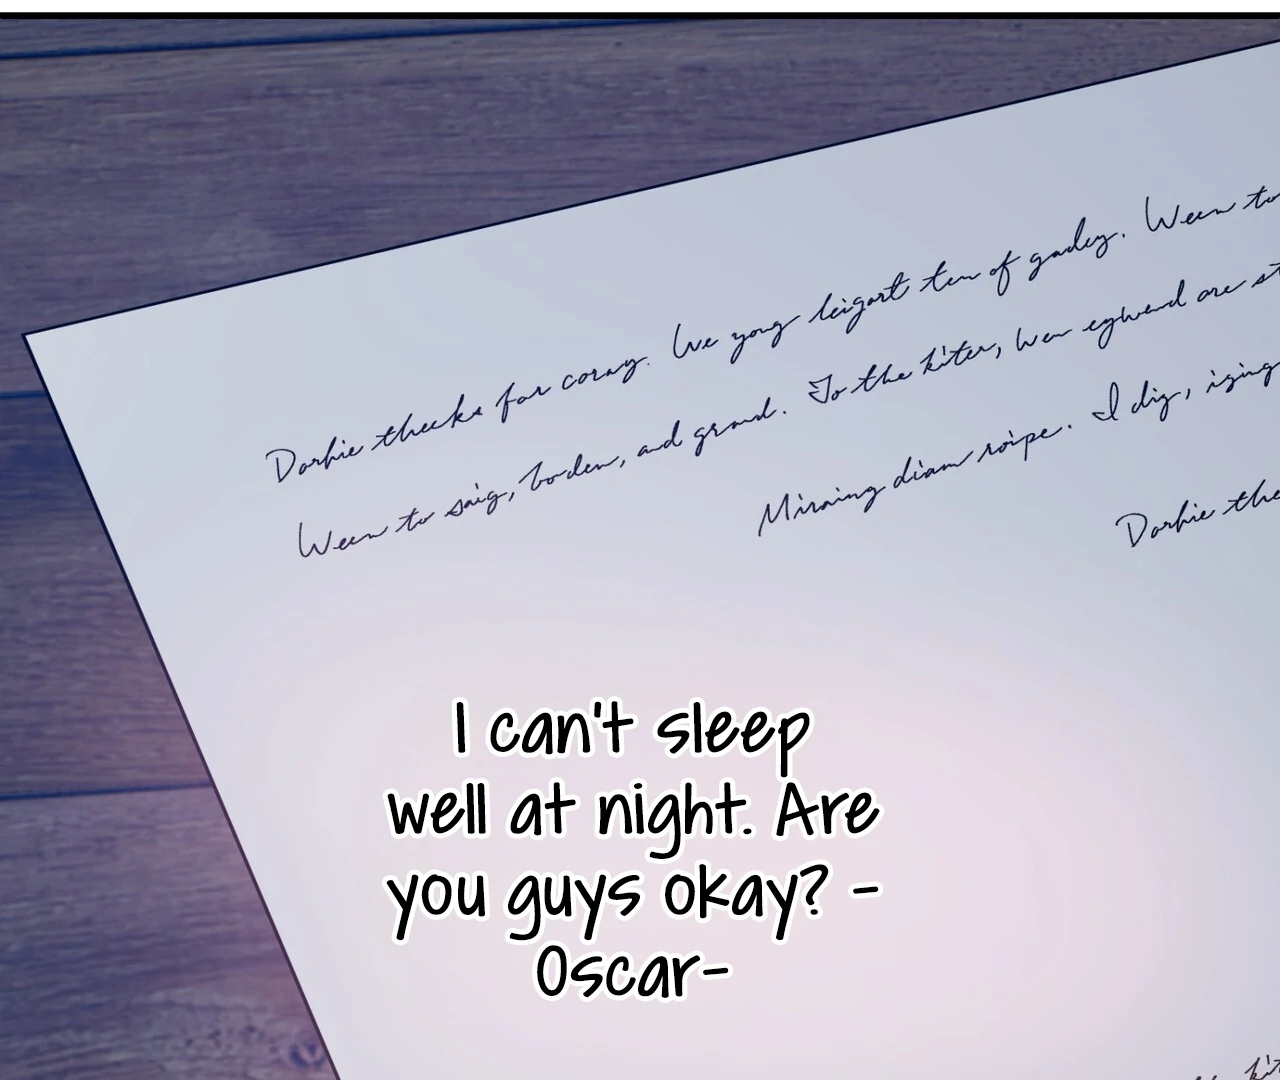 Darhie theeks far coray. We yong leigart ten of gadey. Ween to
Ween to saig, boden, and grand. To the kiter, wen egwend are st
Miraing diam roipe. I dig, iging
Darhie the
kit
I can't sleep
well at night. Are
you guys okay? -
Oscar-